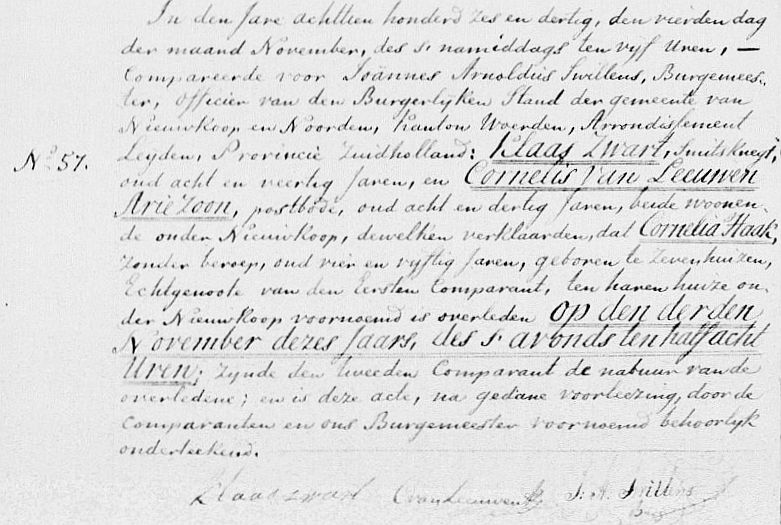 In den Jare achttien honderd zes en dertig, den vierden dag
der maand November, des s' namiddags ten vyf Uren, —
Compareerde voor Joännes Arnoldus Swillens, Burgemees-
ter, Officier van den Burgerlyken Stand der gemeente van
Nieuwkoop en Noorden, Kanton Woerden, Arrondissement
No 57. Leyden, Provincie Zuidholland: Klaas Zwart, Smitsknegt,
oud acht en veertig Jaren, en Cornelis Van Leeuwen
Arie Zoon, postbode, oud acht en dertig Jaren, beide woonen-
de onder Nieuwkoop, dewelken verklaarden, dat Cornelia Haak,
Zonder beroep, oud vier en vyftig Jaren, geboren te Zevenhuizen,
Echtgenoote van den Eersten Comparant, ten haren huize on-
der Nieuwkoop voornoemd is overleden op den derden
November dezes Jaars, des s' avonds ten half acht
Uren; zynde den tweeden Comparant de nabuur van de
overledene; en is deze acte, na gedane voorleezing, door de
Comparanten en ons Burgemeester voornoemd behoorlyk
onderteekend.
Klaas zwart C van Leeuwen Az J. A. Swillens